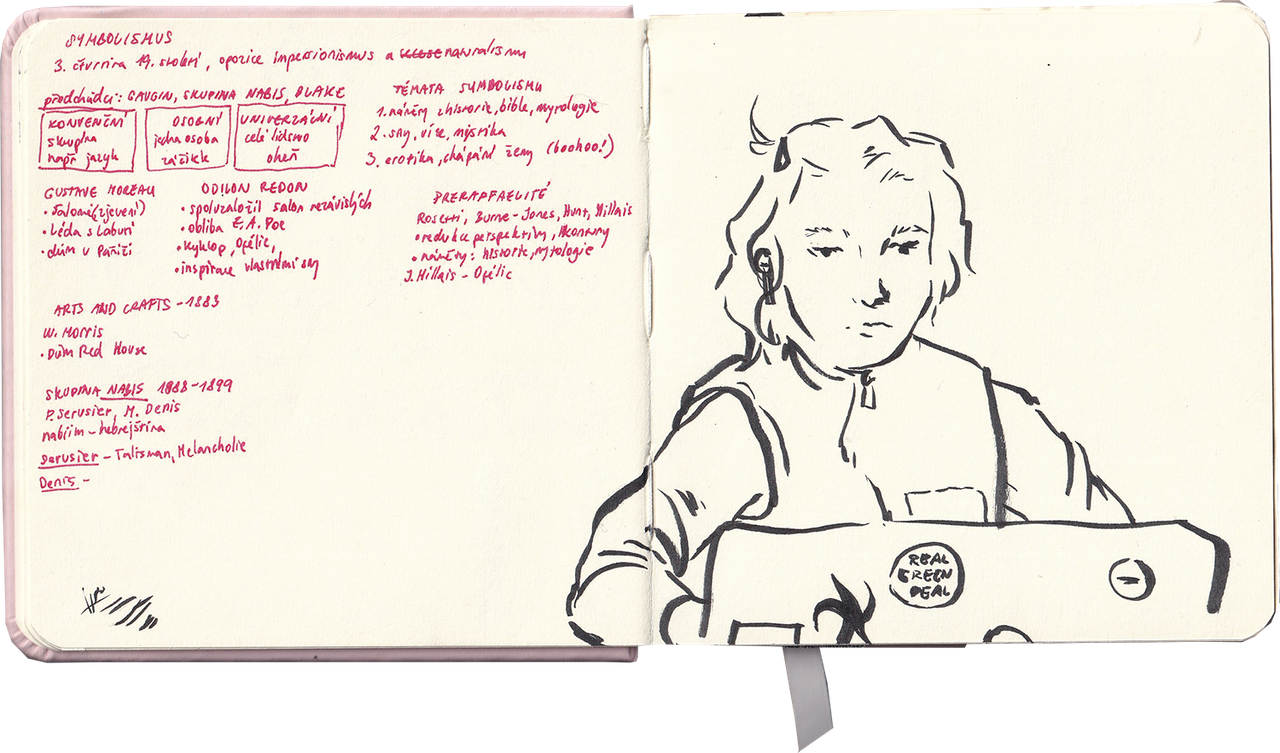 SYMBOLISMUS
3. čtvrtina 19. století, opozice impresionismus a naturalismu
předchůdci: GAUGIN, SKUPINA NABIS, BLAKE
KONVENČNÍ
skupina
např jazyk
OSOBNÍ
jedna osoba
zážitek
UNIVERZÁLNÍ
celé lidstvo
oheň
TÉMATA SYMBOLISMU
1. náměty z historie, bible, mytologie
2. sny, vize, mystika
3. erotika, chápání ženy (boohoo!)
GUSTAVE MOREAU
• Salome (zjevení)
• Léda s labutí
• dům v Paříži
ODILON REDON
• spoluzaložil salon nezávislých
• obliba E. A. Poe
• kyklop, Ofélie,
• inspirace vlastními sny
PRERAFAELITÉ
Rosetti, Burne-Jones, Hunt, Millais
• redukce perspektivy, kontury
• náměty: historie, mytologie
J. Millais - Ofélie
ARTS AND CRAFTS - 1883
W. Morris
• Dům Red House
SKUPINA NABIS 1888-1899
P. Serusier, M. Denis
nabiim - hebrejština
Serusier - Talisman, Melancholie
Denis -
REAL
GREEN
DEAL